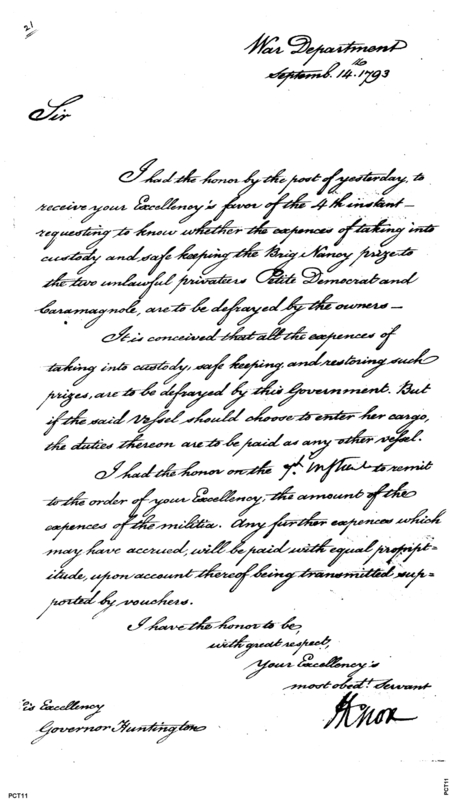 21
War Department
Septemb. 14.th 1793
Sir
I had the honor by the post of yesterday, to
receive your Excellency's favor of the 4th instant—
requesting to know whether the expences of taking into
custody and safe keeping the Brig Nancy prize to
the two unlawful privatiers Petite Democrat and
Caramagnole, are to be defrayed by the owners—
It is conceived that all the expences of
taking into custody, safe keeping, and restoring such
prizes, are to be defrayed by this Government. But
if the said Vessel should choose to enter her cargo,
the duties thereon are to be paid as any other vessel.
I had the honor on the 7th. instant to remit
to the order of your Excellency, the amount of the
expences of the militia. Any further expences which
may have accrued, will be paid with equal prompt=
itude, upon account thereof being transmitted sup=
ported by vouchers.
I have the honor to be,
with great respect,
Your Excellency's
most obedt. Servant
HKnox
is Excellency
Governor Huntington
PCT11
PCT11